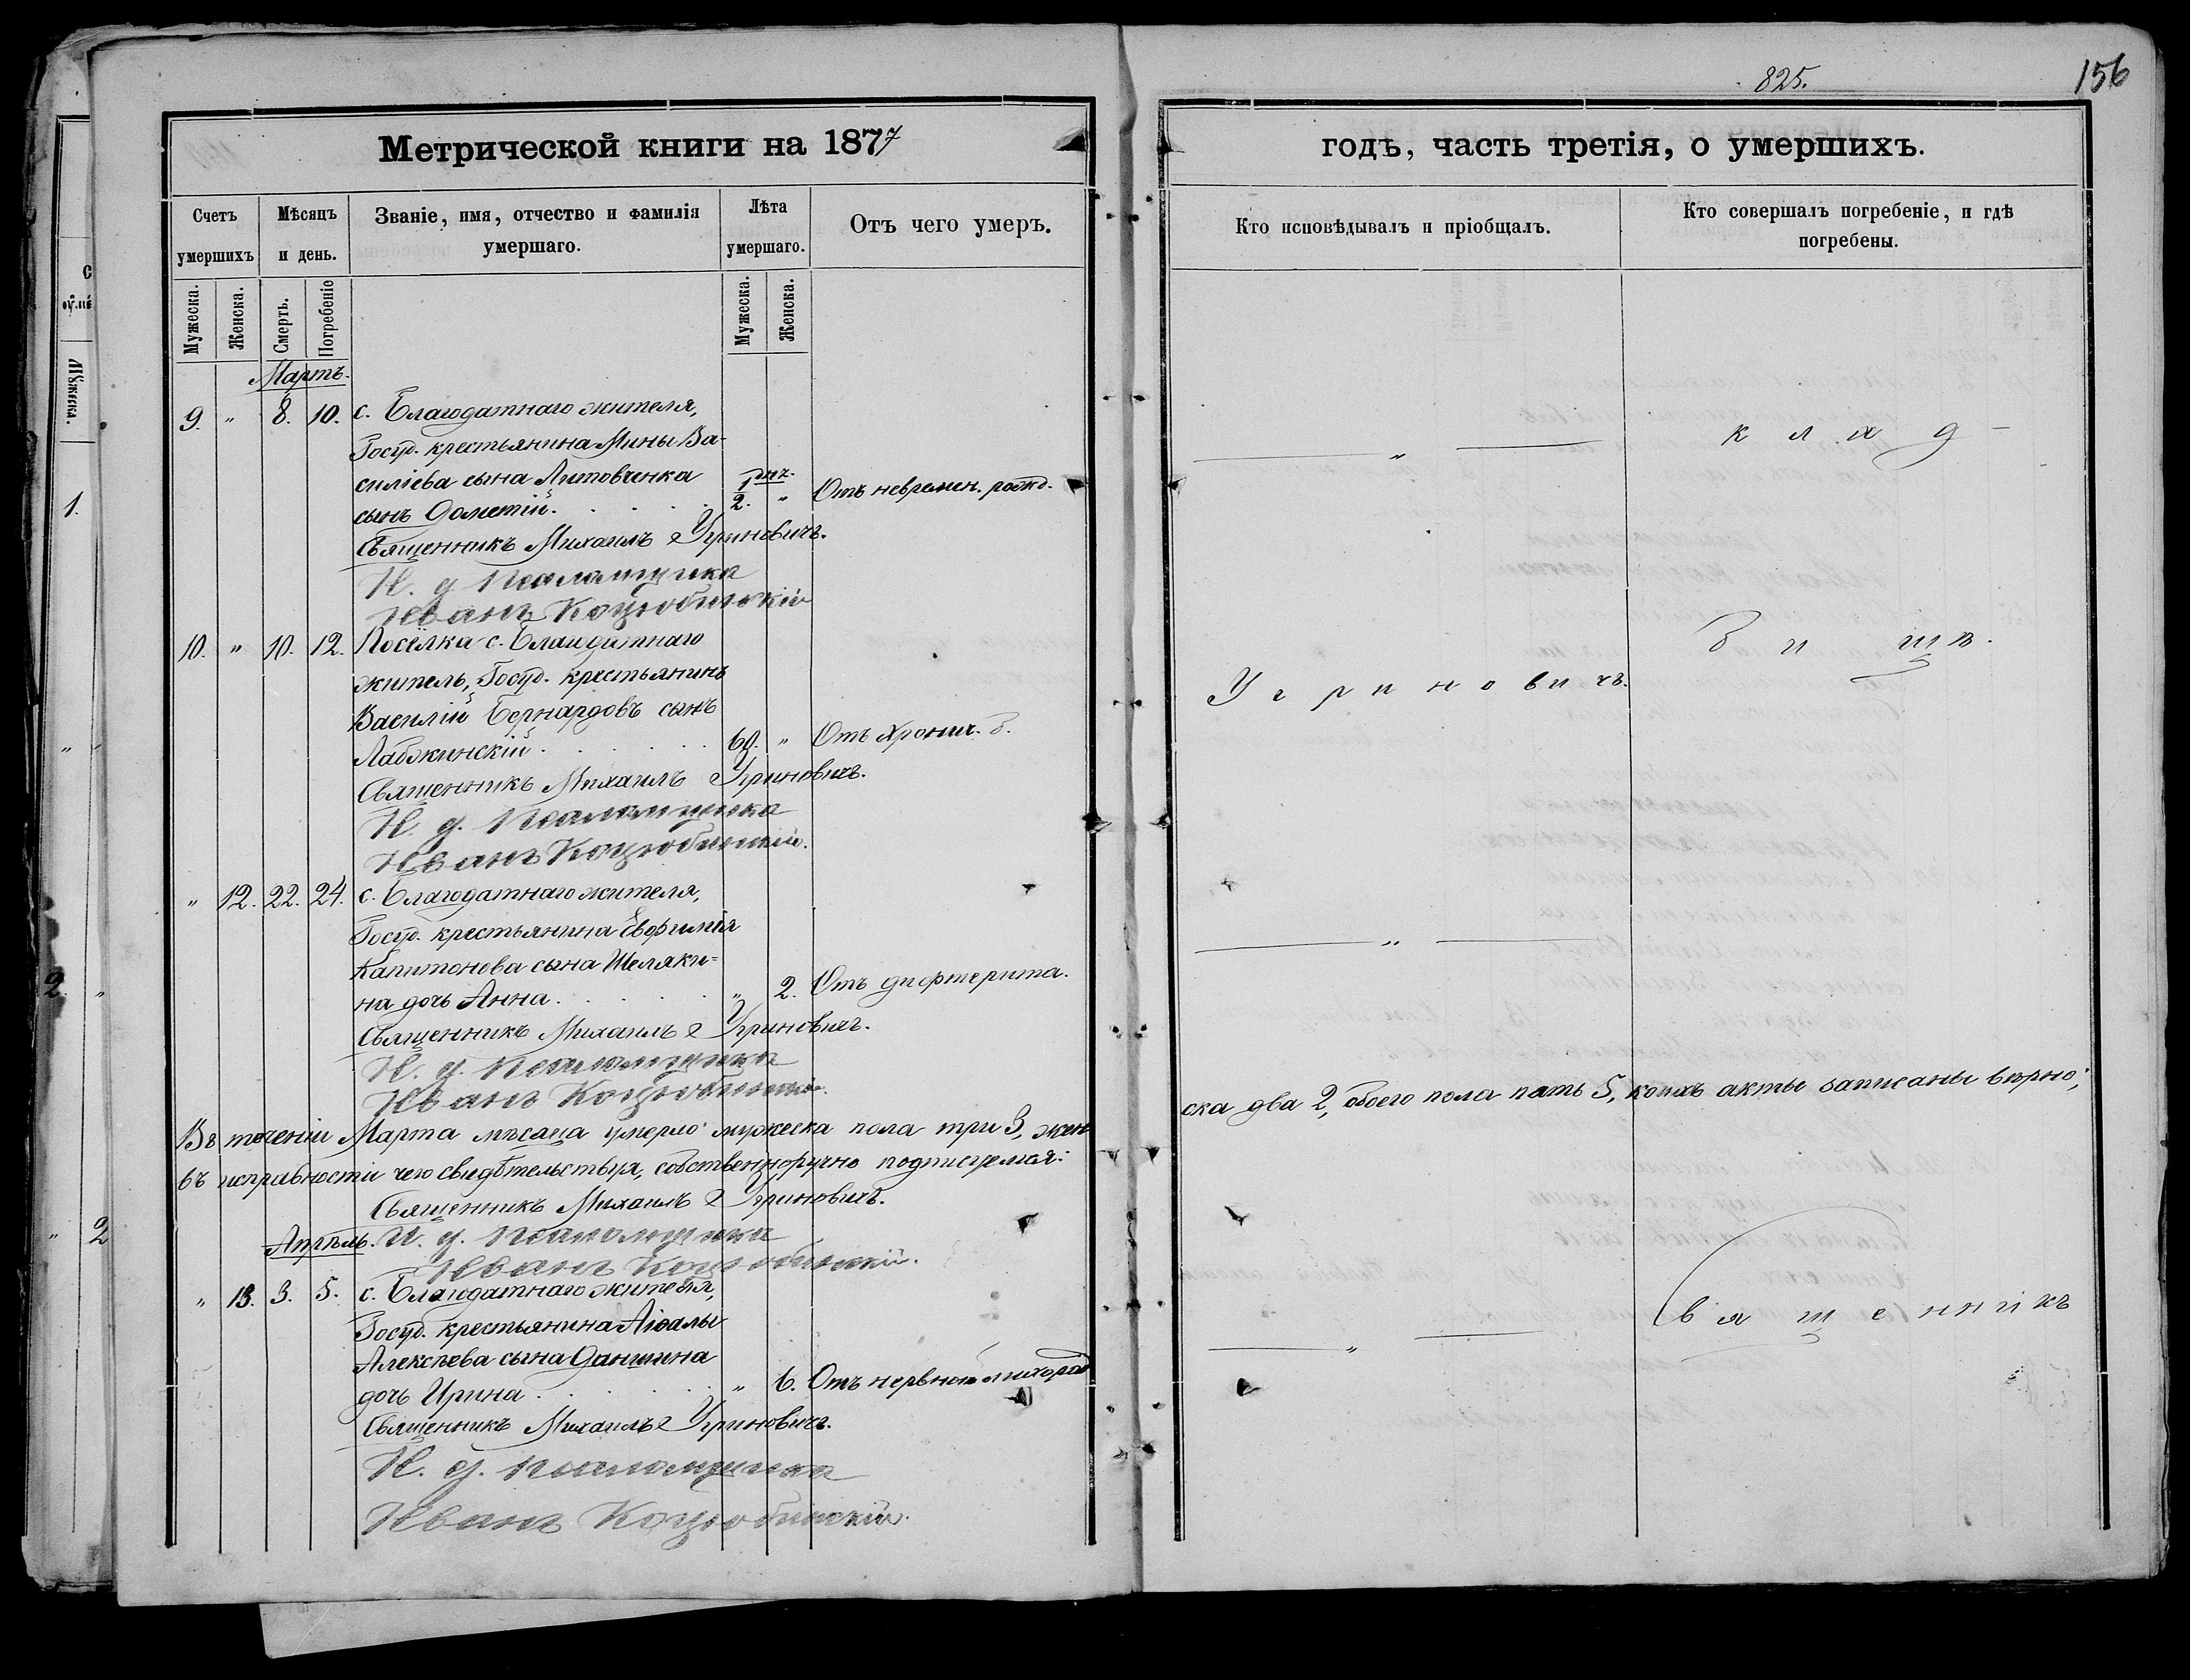 825.
156
Метрической книги на 1877
годъ, часть третія, о умершихъ.
Счетъ умершихъ
Мѣсяцъ и день.
Званіе, имя, отчество и фамилія умершаго.
Лѣта умершаго.
Отъ чего умеръ.
Кто исповѣдывалъ и пріобщалъ.
Кто совершалъ погребеніе, и гдѣ погребены.
Мужеска.
Женска.
Смерть.
Погребеніе
Мужеска.
Женска.
Мартъ.
9. " 8. 10. с. Благодатнаго жителя,
Госуд. крестьянина Мины Ва-
силіева сына Литовченка
сынъ Дометій. 1/2. дня. " Отъ невремен. рожд.
Священникъ Михаилъ Угриновичъ.
И. д. Псаломщика
Иванъ Коцюбинскій
10. " 10. 12. Посёлка с. Благодатнаго
житель, Госуд. крестьянинъ
Василій Бернардовъ сынъ
Лабжинскій. 60. " Отъ хронич. б.
Священникъ Михаилъ Угриновичъ.
И. д. Псаломщика
Иванъ Коцюбинскій.
" 12. 22. 24. с. Благодатнаго жителя,
Госуд. крестьянина Евфимія
Капитонова сына Шеляки=
на дочь Анна. " 2. Отъ дифтерита.
Священникъ Михаилъ Угриновичъ.
И. д. Псаломщика
Иванъ Коцюбинскій.
Въ теченіи Марта мѣсяца умерло мужеска пола три 3, жен
ска два 2, обоего пола пять 5, коихъ акты записаны вѣрно;
въ исправности чего свидѣтельствуя, собственноручно подписуемся:
Священникъ Михаилъ Угриновичъ.
Апрѣль. И. д. Псаломщика
Иванъ Коцюбинскій.
" 13. 3. 5. с. Благодатнаго жителя,
Госуд. крестьянина Аіѳалы
Алексѣева сына Даншина
дочь Ирина. " 6. Отъ нервной лихорад
Священникъ Михаилъ Угриновичъ.
И. д. Псаломщика
Иванъ Коцюбинскій.
"
к л а д
Угриновичъ.
б и щ ѣ.
"
"
Священникъ
1.
2.
2